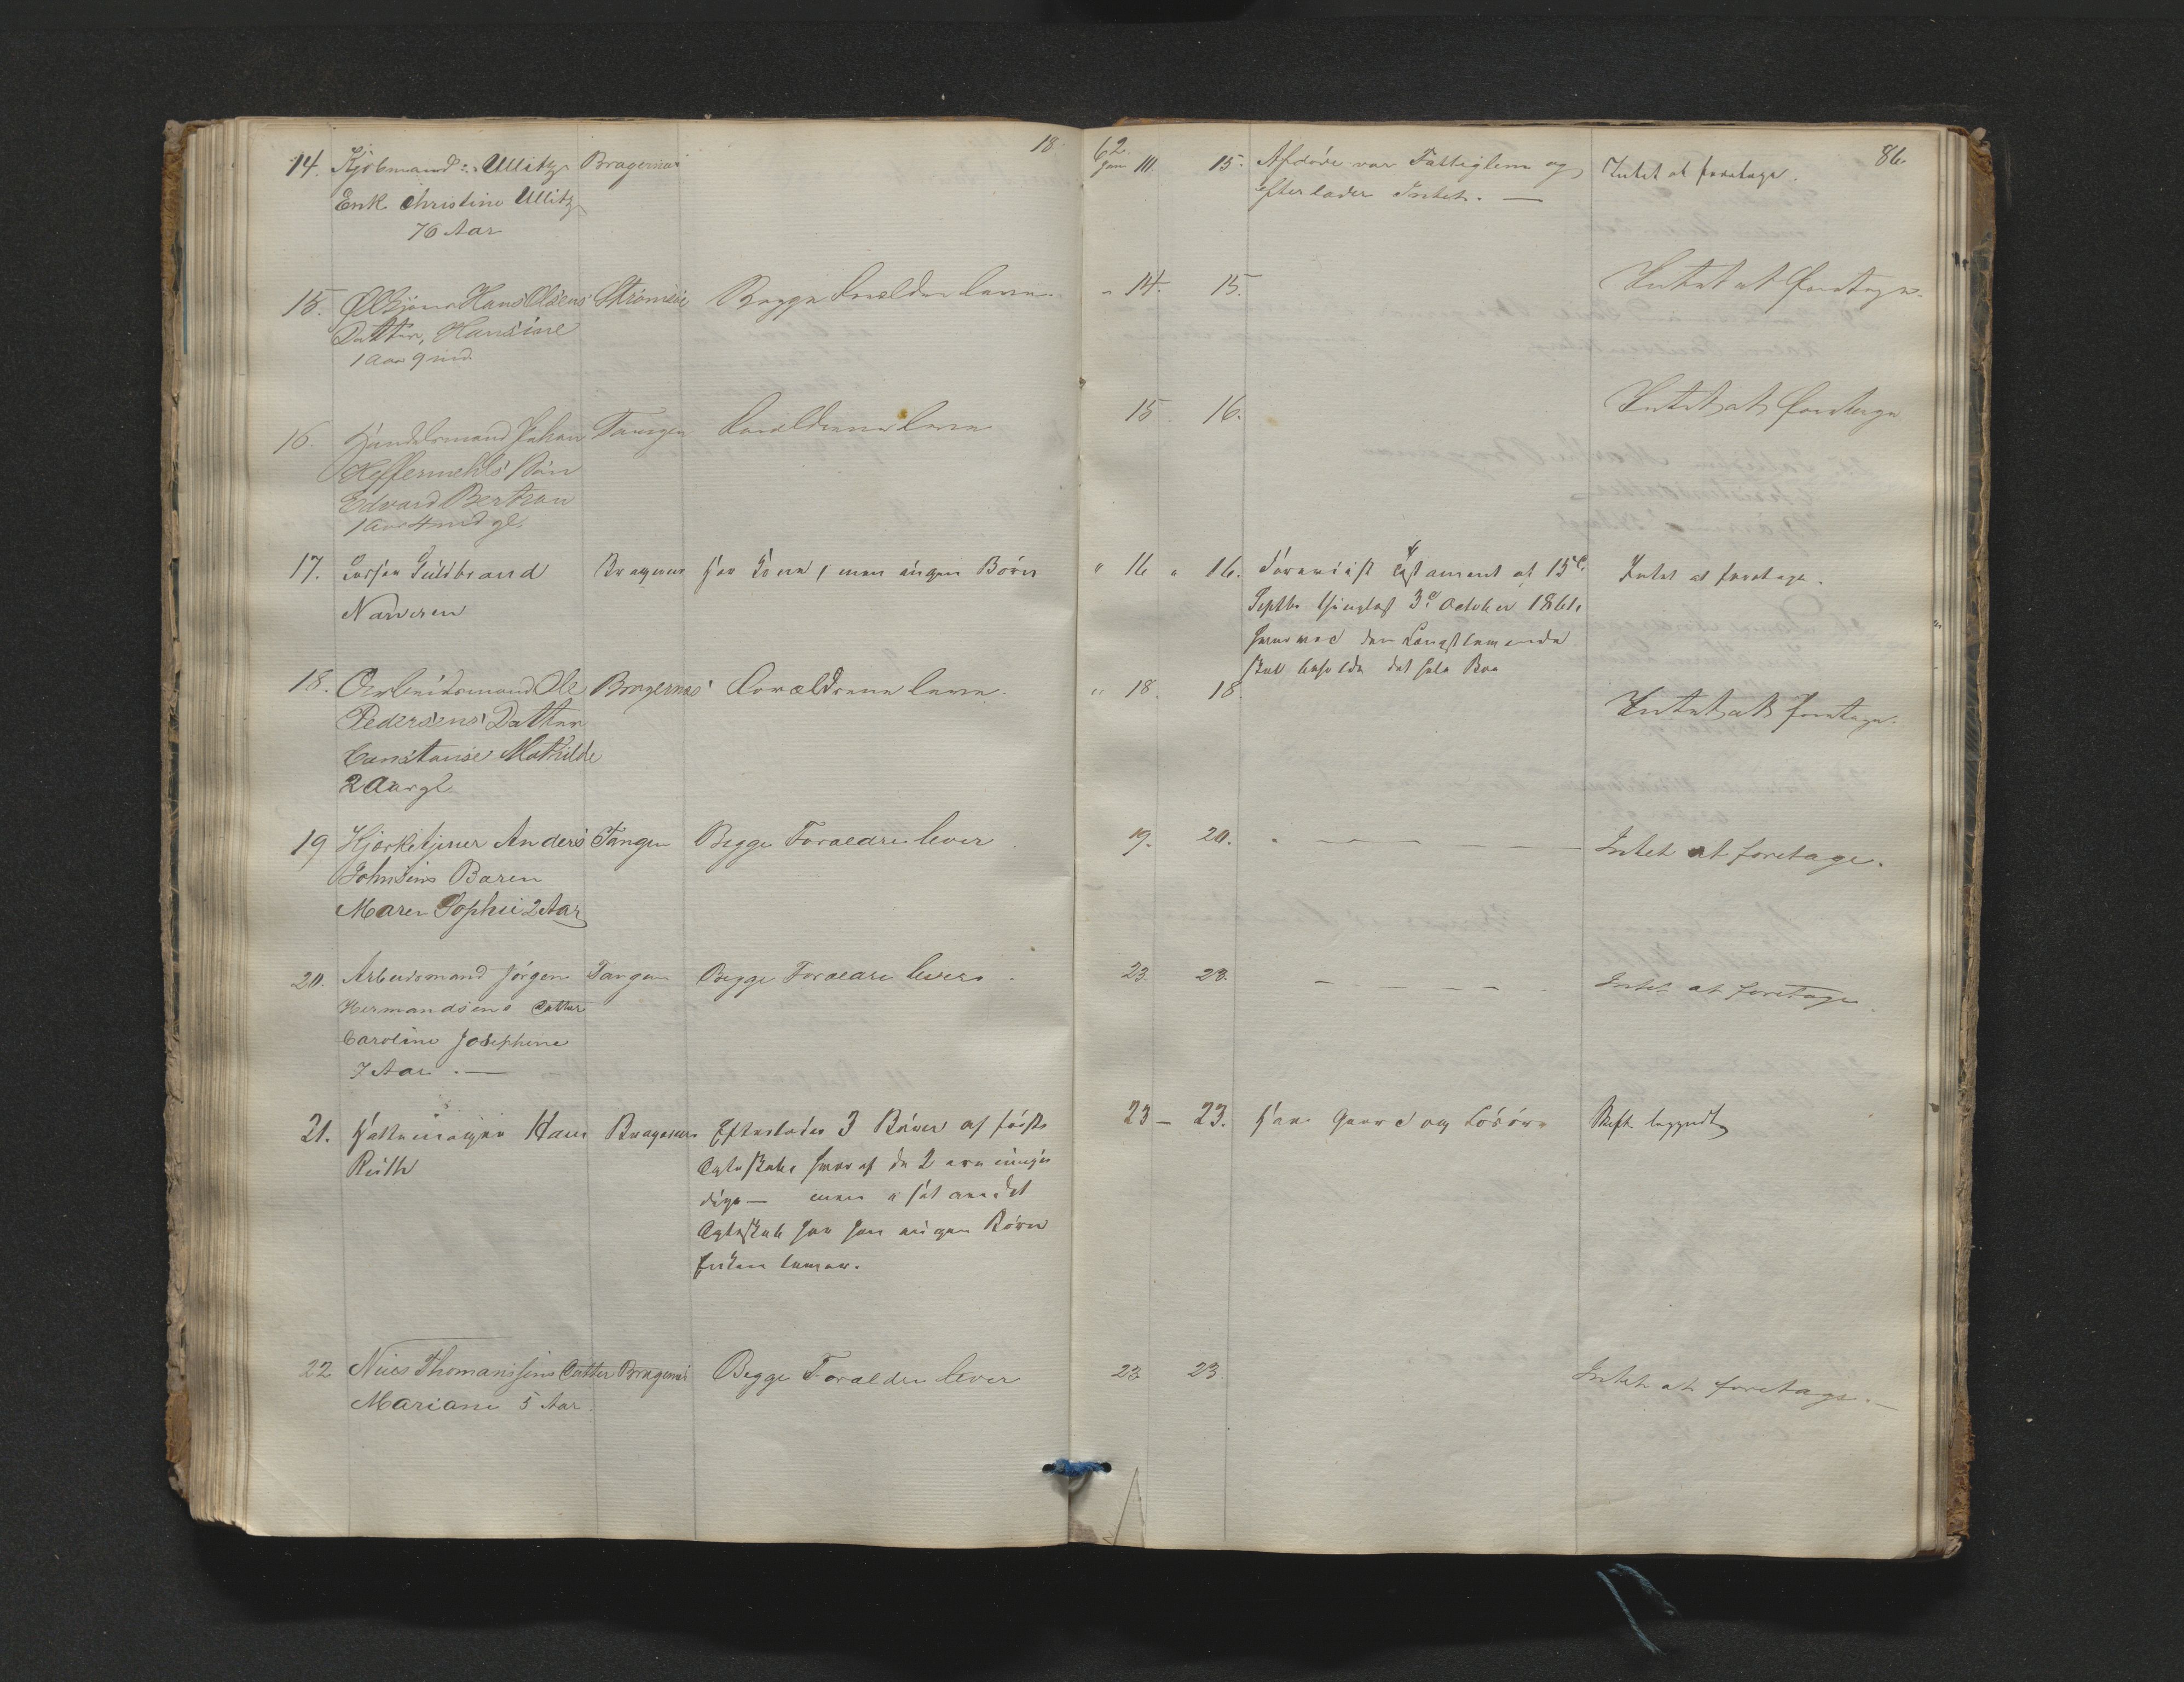 18 62. 86
14. Kjøbmand Ullitz Bragernæs Jan 11. 15. Afdøde var Fattiglem og Intet at foretage.
Enke Christine Ullitz efterlader Intet. —
76 Aar
15. Hans Olsens Strømsøe Begge Forældre leve. " 14. 15. Intet at foretage.
Datter, Hansine
1 Aar 9 md.
16. Handelsmand Johan Tangen Forældrene leve 15 16. Intet at foretage
Heffermehls Søn
Edvard Bertran
1 Aar 4 md gl.
17. Guldbrand Bragernæs har Kone, men ingen Børn " 16 " 16. Testament af 15de Intet at foretage.
Narvesen Septbr thinglæst 3die October 1861.
hvorved den Længstlevende
skal beholde det hele Boe
18. Arbeidsmand Ole Bragernæs Forældrene leve. " 18. 18. Intet at foretage.
Pedersens Datter
Constanse Mathilde
2 Aar gl.
19 Kjørketjener Anders Tangen Begge Forældre lever 19. 20. — — — — — Intet at foretage.
Johnsens Baren
Maren Sophie 2 Aar
20. Arbeidsmand Jørgen Tangen Begge Forældre lever. 23. 23. — — — — — Intet at foretage
Hermandsens Datter
Caroline Josephine
7 Aar. —
21. Hattemager Hans Bragernæs Efterlader 3 Børn af første 23 — 23. Har Gaard og Løsøre Skift. begyndt
Rüth Ægteskab, hvoraf de 2 ere umyn
dige — men i sit andet
Ægteskab har han ingen Børn
Enken lever.
22 Nils Thomansens Datter Bragernæs Begge Forældre lever 23 23. Intet at foretage. —
Mariane 5 Aar.